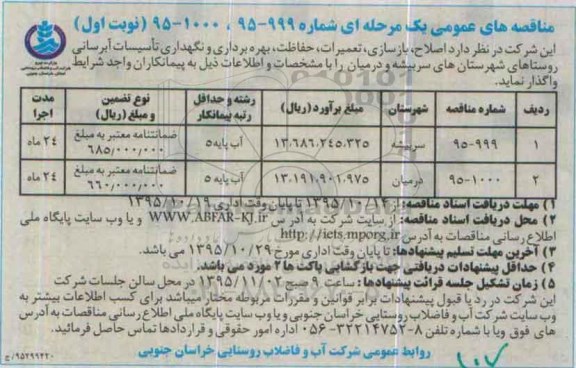 مناقصه های عمومی یک مرحله ای شماره ۹۹۹-۹۵ ، ۱۰۰۰-۹۵ (نوبت اول)
این شرکت در نظر دارد اصلاح، بازسازی، تعمیرات، حفاظت، بهره برداری و نگهداری تأسیسات آبرسانی
روستاهای شهرستان های سربیشه و درمیان را با مشخصات و اطلاعات ذیل به پیمانکاران واجد شرایط
واگذار نماید.
ردیف شماره مناقصه شهرستان مبلغ برآورد (ریال) رشته و حداقل رتبه پیمانکار نوع تضمین و مبلغ (ریال) مدت اجرا
۱ ۹۹۹-۹۵ سربیشه ۱۳،۶۸۶،۲۴۵،۳۲۵ آب پایه ۵ ضمانتنامه معتبر به مبلغ ۶۸۵/۰۰۰/۰۰۰ ۲۴ ماه
۲ ۱۰۰۰-۹۵ درمیان ۱۳،۱۹۱،۹۰۱،۹۷۵ آب پایه ۵ ضمانتنامه معتبر به مبلغ ۶۶۰/۰۰۰/۰۰۰ ۲۴ ماه
۱) مهلت دریافت اسناد مناقصه: از ۱۳۹۵/۱۰/۱۴ تا پایان وقت اداری ۱۳۹۵/۱۰/۱۹
۲) محل دریافت اسناد مناقصه: از سایت شرکت به آدرس WWW.ABFAR-KJ.ir و یا وب سایت پایگاه ملی
اطلاع رسانی مناقصات به آدرس http://iets.mporg.ir
۳) آخرین مهلت تسلیم پیشنهادها: تا پایان وقت اداری مورخ ۱۳۹۵/۱۰/۲۹ می باشد.
۴) حداقل پیشنهادات دریافتی جهت بازگشایی پاکت ها ۲ مورد می باشد.
۵) زمان تشکیل جلسه قرائت پیشنهادها: ساعت ۹ صبح ۱۳۹۵/۱۱/۰۲ در محل سالن جلسات شرکت
این شرکت در رد یا قبول پیشنهادات برابر قوانین و مقررات مربوطه مختار میباشد برای کسب اطلاعات بیشتر به
وب سایت شرکت آب و فاضلاب روستایی خراسان جنوبی و یا وب سایت پایگاه ملی اطلاع رسانی مناقصات به آدرس
های فوق و یا با شماره تلفن ۸-۳۲۲۱۴۷۵۲-۰۵۶ اداره امور حقوقی و قراردادها تماس حاصل فرمائید.
روابط عمومی شرکت آب و فاضلاب روستایی خراسان جنوبی
۹۵۲۹۹۴۲۰/ج